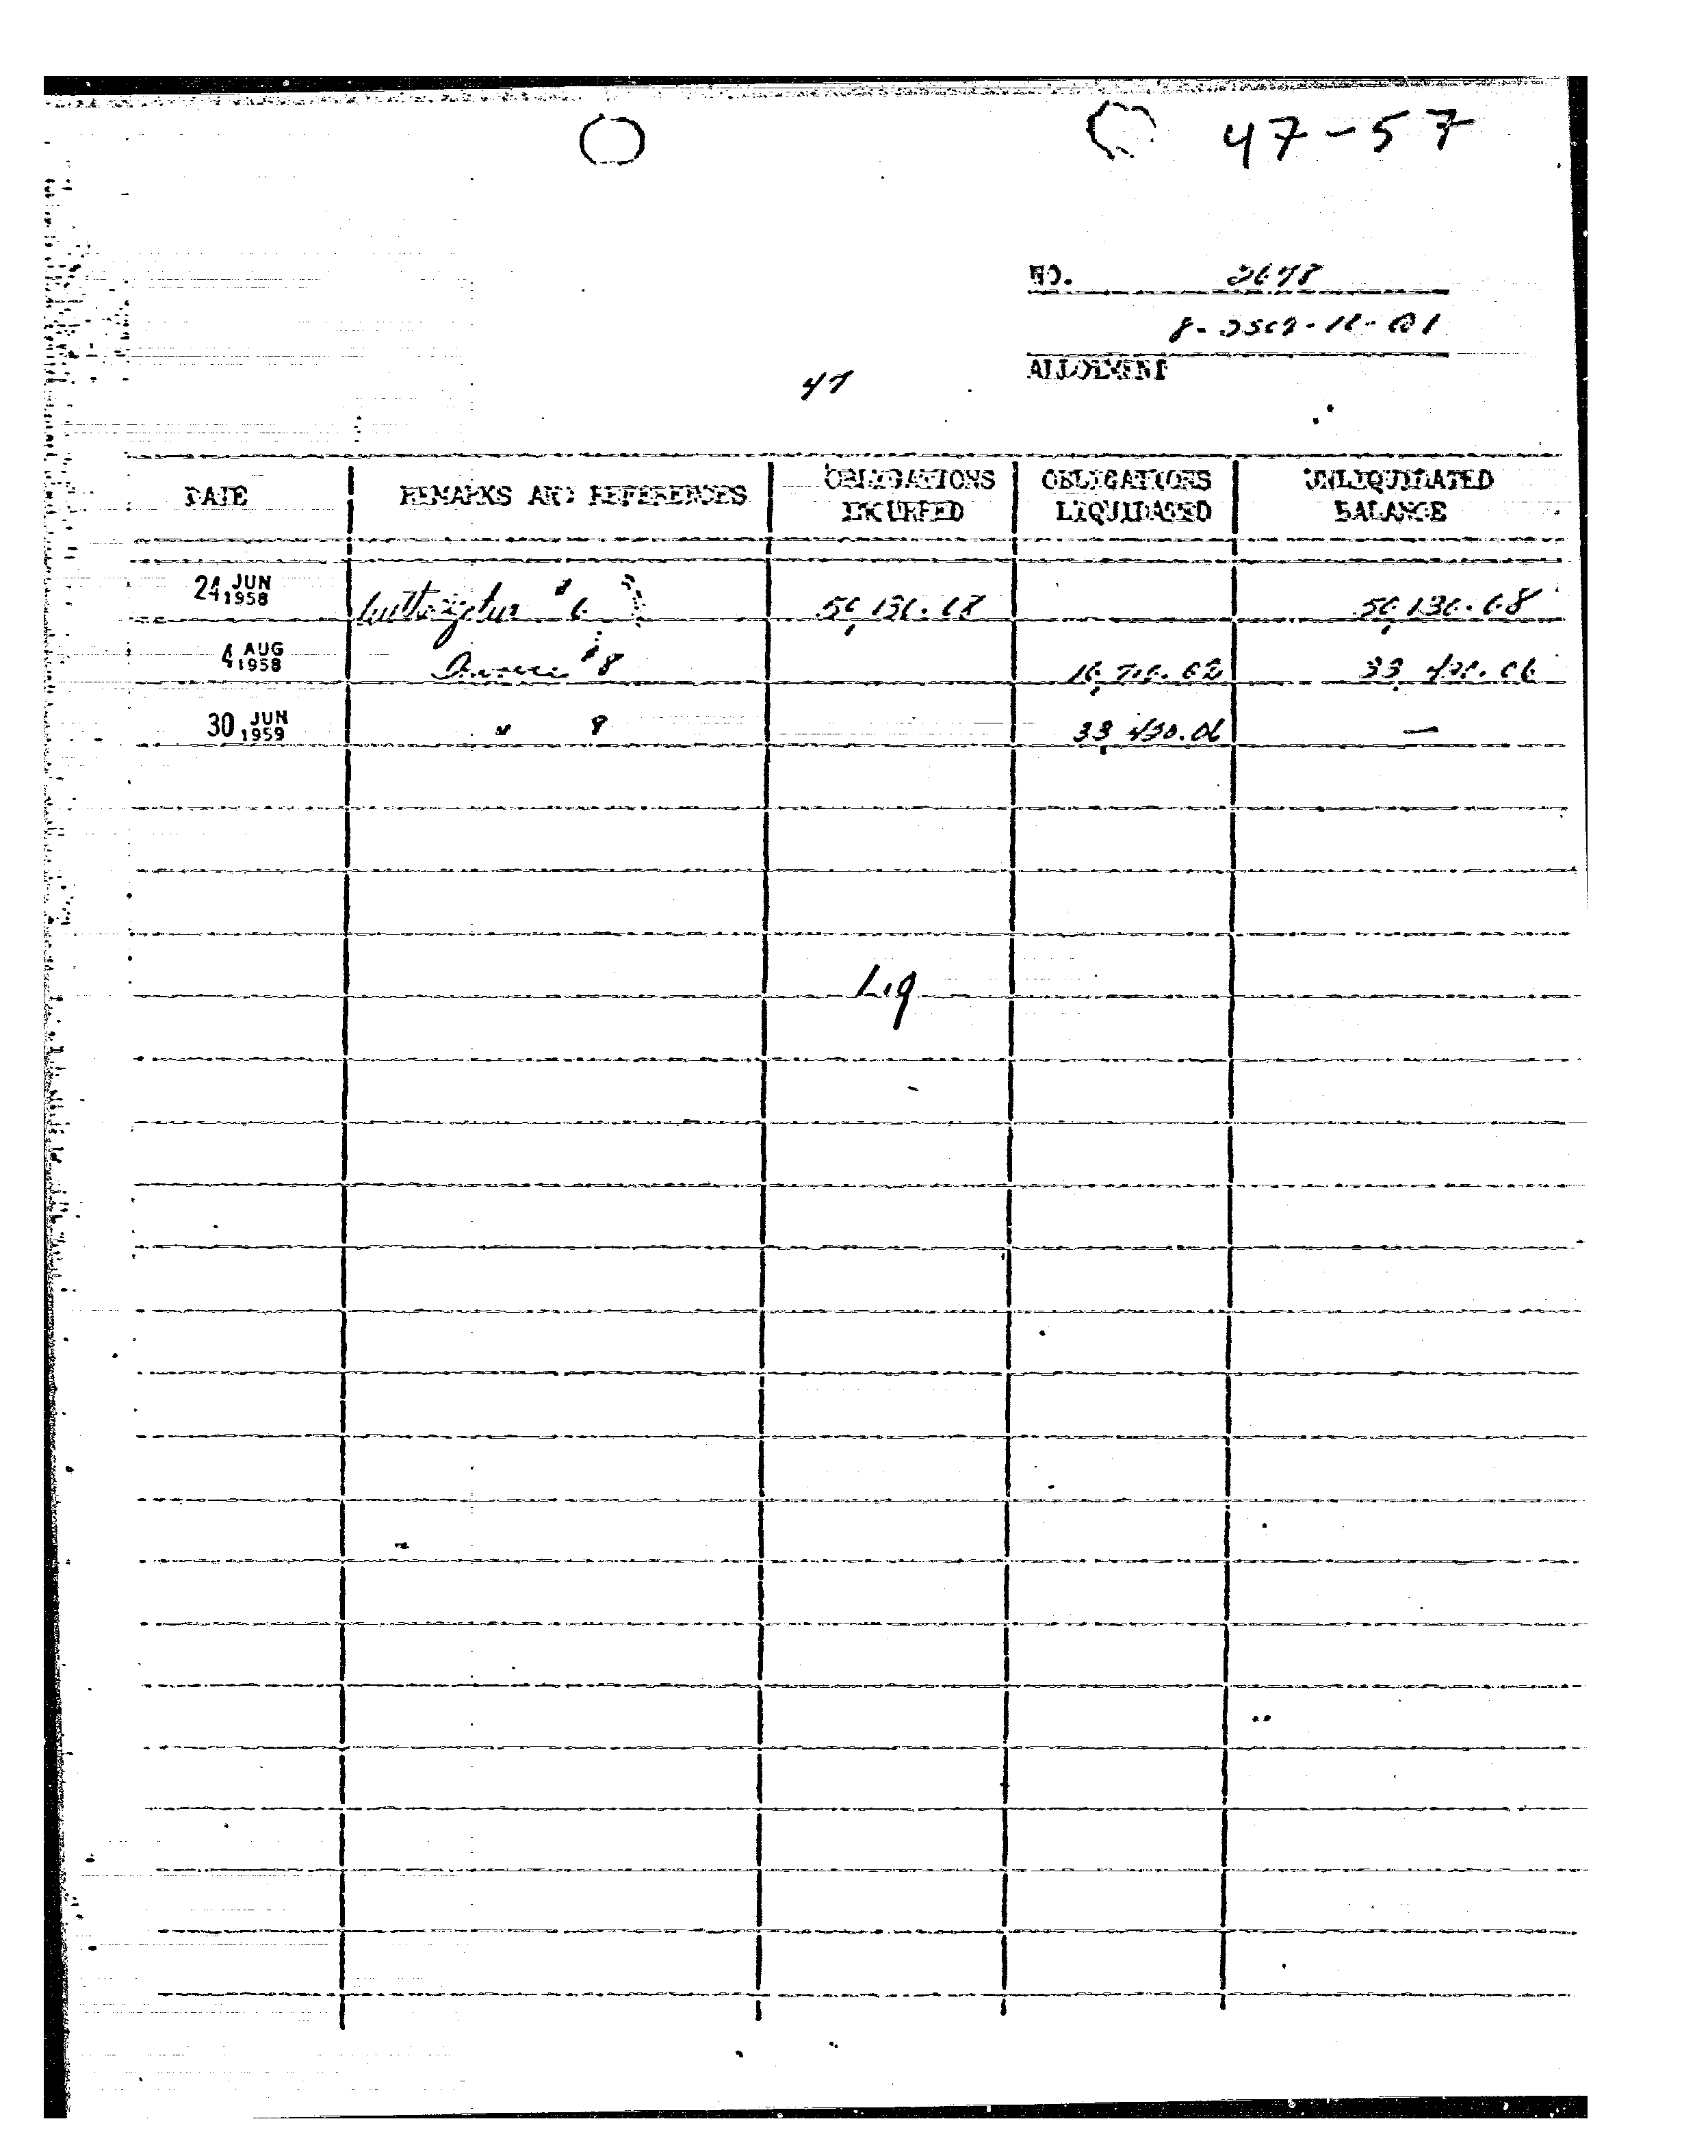 47-57
NO. 2678
8-2502-10-01
ALLOTMENT
47
DATE REMARKS AND REFERENCES OBLIGATIONS INCURRED OBLIGATIONS LIQUIDATED UNLIQUIDATED BALANCE
24 JUN 1958 #6 50,130.68 50,130.68
4 AUG 1958 Invoice #8 33,420.06
30 JUN 1959 " 9 33,420.06 —
Liq